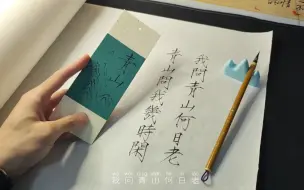 我問青山何日老
青山問我幾時閑
青山
我问青山何日老